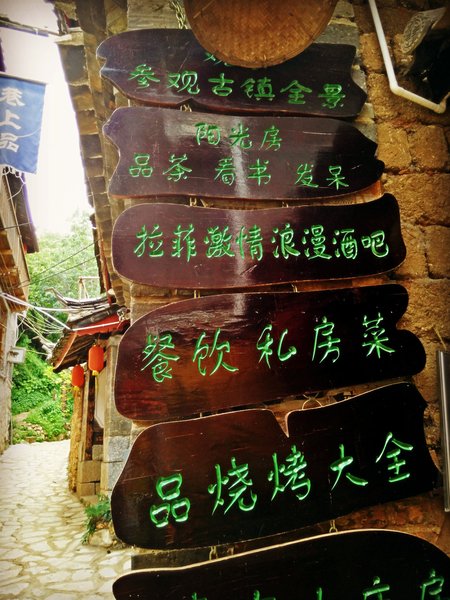 巷上品
参观古镇全景
阳光房
品茶 看书 发呆
拉菲激情浪漫酒吧
餐饮私房菜
品烧烤大全